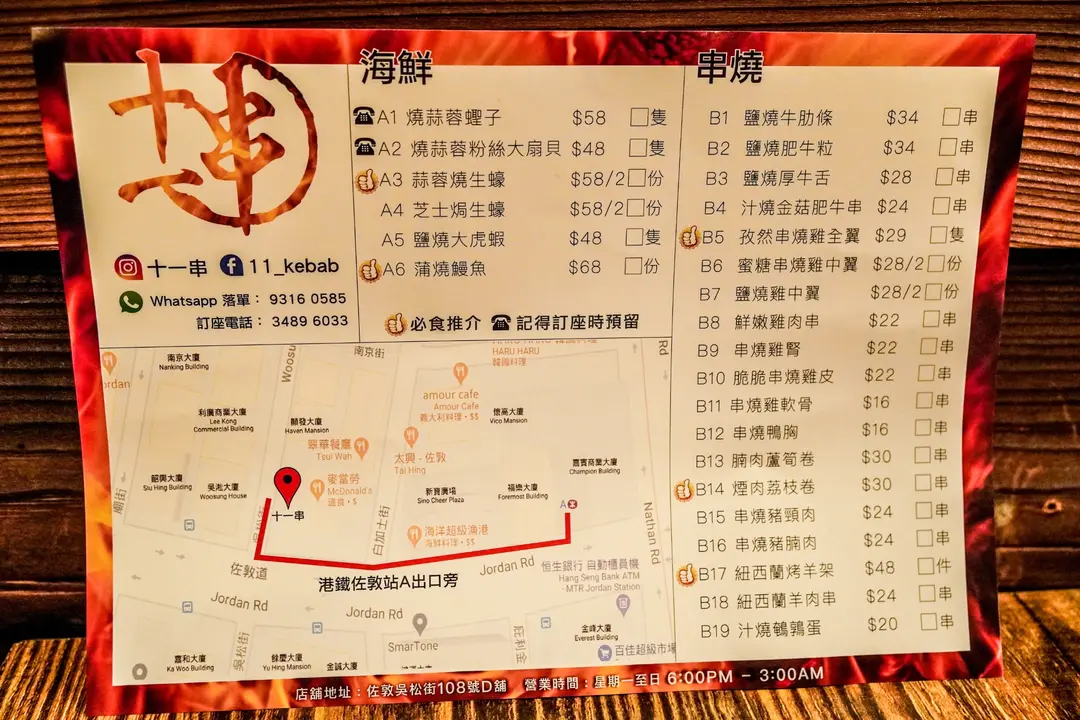 十一串
十一串 11_kebab
Whatsapp 落單： 9316 0585
訂座電話： 3489 6033
海鮮
A1 燒蒜蓉蟶子 $58 隻
A2 燒蒜蓉粉絲大扇貝 $48 隻
A3 蒜蓉燒生蠔 $58/2 份
A4 芝士焗生蠔 $58/2 份
A5 鹽燒大虎蝦 $48 隻
A6 蒲燒鰻魚 $68 份
必食推介 記得訂座時預留
串燒
B1 鹽燒牛肋條 $34 串
B2 鹽燒肥牛粒 $34 串
B3 鹽燒厚牛舌 $28 串
B4 汁燒金菇肥牛串 $24 串
B5 孜然串燒雞全翼 $29 隻
B6 蜜糖串燒雞中翼 $28/2 份
B7 鹽燒雞中翼 $28/2 份
B8 鮮嫩雞肉串 $22 串
B9 串燒雞腎 $22 串
B10 脆脆串燒雞皮 $22 串
B11 串燒雞軟骨 $16 串
B12 串燒鴨胸 $16 串
B13 腩肉蘆筍卷 $30 串
B14 煙肉荔枝卷 $30 串
B15 串燒豬頸肉 $24 串
B16 串燒豬腩肉 $24 串
B17 紐西蘭烤羊架 $48 件
B18 紐西蘭羊肉串 $24 串
B19 汁燒鵪鶉蛋 $20 串
南京大廈
Nanking Building
Woosu
南京街
HARU HARU
韓國料理
Rd
ordan
amour cafe
Amour Cafe
義大利料理・$$
利廣商業大廈
Lee Kong
Commercial Building
顯發大廈
Haven Mansion
懷高大廈
Vico Mansion
翠華餐廳
Tsui Wah
太興 - 佐敦
Tai Hing
嘉賓商業大廈
Champion Building
韶興大廈
Siu Hing Building
吳淞大廈
Woosung House
麥當勞
McDonald's
速食・$
新寶廣場
Sino Cheer Plaza
福樂大廈
Foremost Building
A
廟街
十一串
吳松街
白加士街
海洋超級漁港
海鮮料理・$$
Nathan Rd
佐敦道
港鐵佐敦站A出口旁
Jordan Rd
恒生銀行 自動櫃員機
Hang Seng Bank ATM
- MTR Jordan Station
Jordan Rd
Jordan Rd
SmarTone
吳松街
庇利金
金峰大廈
Everest Building
百佳超級市場
嘉和大廈
Ka Woo Building
餘慶大廈
Yu Hing Mansion
金誠大廈
店舖地址：佐敦吳松街108號D舖 營業時間：星期一至日 6:00PM - 3:00AM